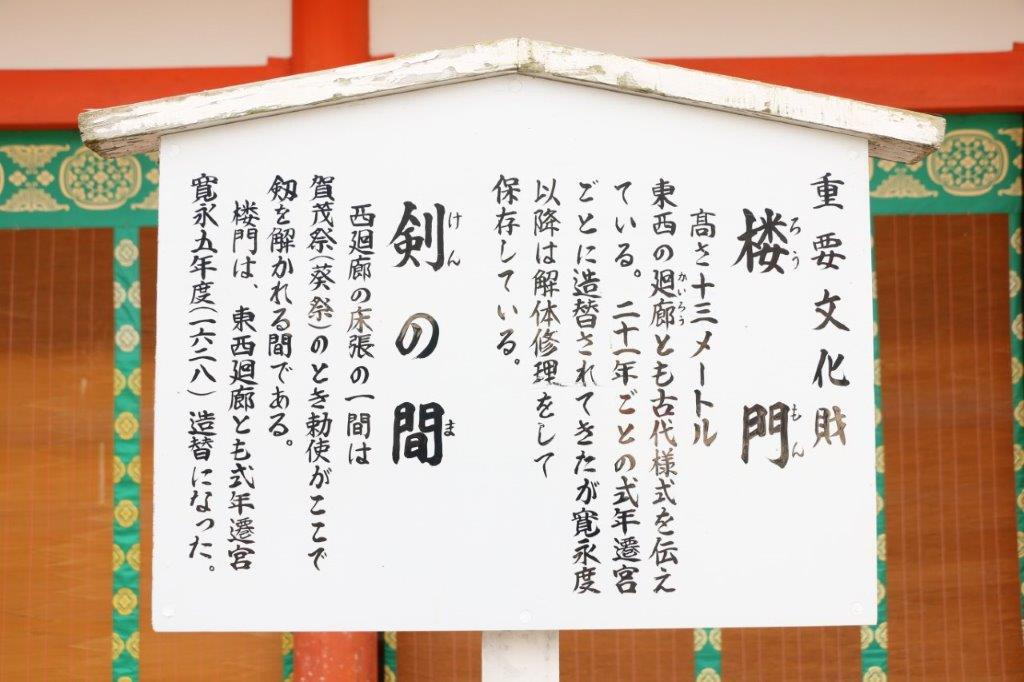 重要文化財
楼門
ろうもん
高さ十三メートル
東西の廻廊とも古代様式を伝え
かいろう
ている。二十一年ごとの式年遷宮
ごとに造替されてきたが寛永度
以降は解体修理をして
保存している。
剣の間
けんま
西廻廊の床張の一間は
賀茂祭(葵祭)のとき勅使がここで
剱を解かれる間である。
楼門は、東西廻廊とも式年遷宮
寛永五年度(一六二八)造替になった。